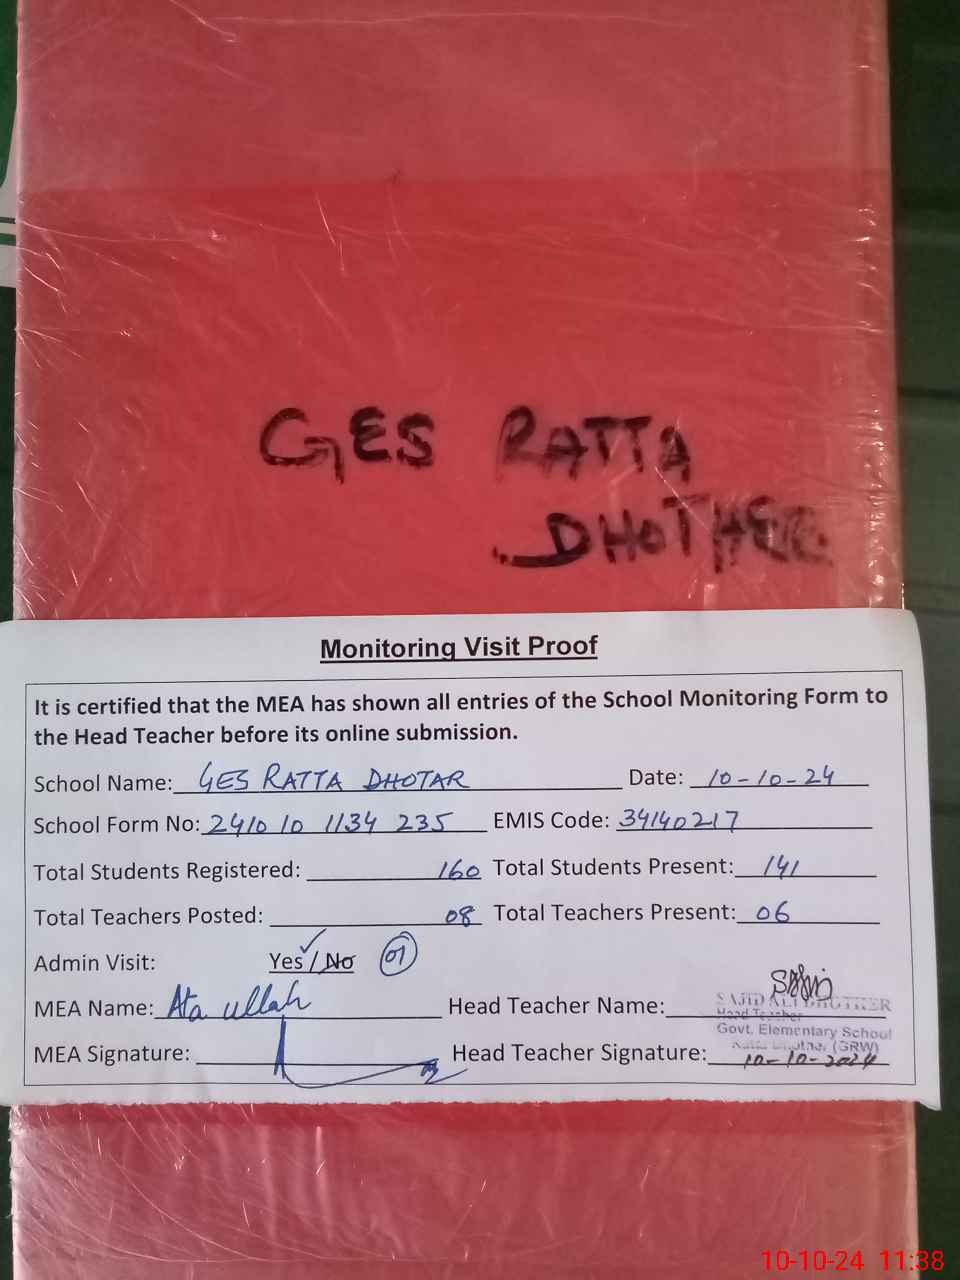 GES RATTA
DHOTHER
Monitoring Visit Proof
It is certified that the MEA has shown all entries of the School Monitoring Form to
the Head Teacher before its online submission.
School Name: GES RATTA DHOTAR Date: 10-10-24
School Form No: 2410 10 1134 235 EMIS Code: 34140217
Total Students Registered: 160 Total Students Present: 141
Total Teachers Posted: 08 Total Teachers Present: 06
Admin Visit: Yes / No 01
MEA Name: Ata ullah Head Teacher Name: SAJID ALI DHOTHER
Head Teacher
Govt. Elementary School
(GRW)
MEA Signature: Head Teacher Signature: 10-10-2024
10-10-24 11:38